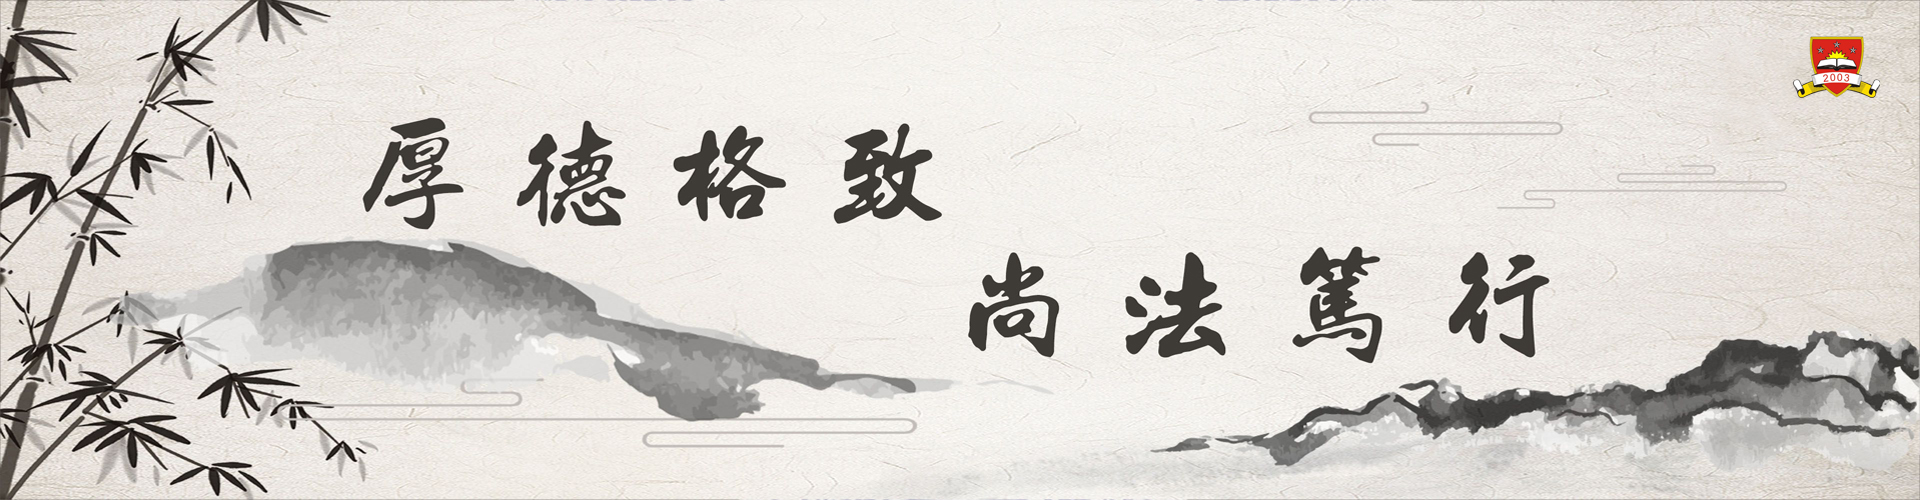 厚德格致
尚法篤行
2003